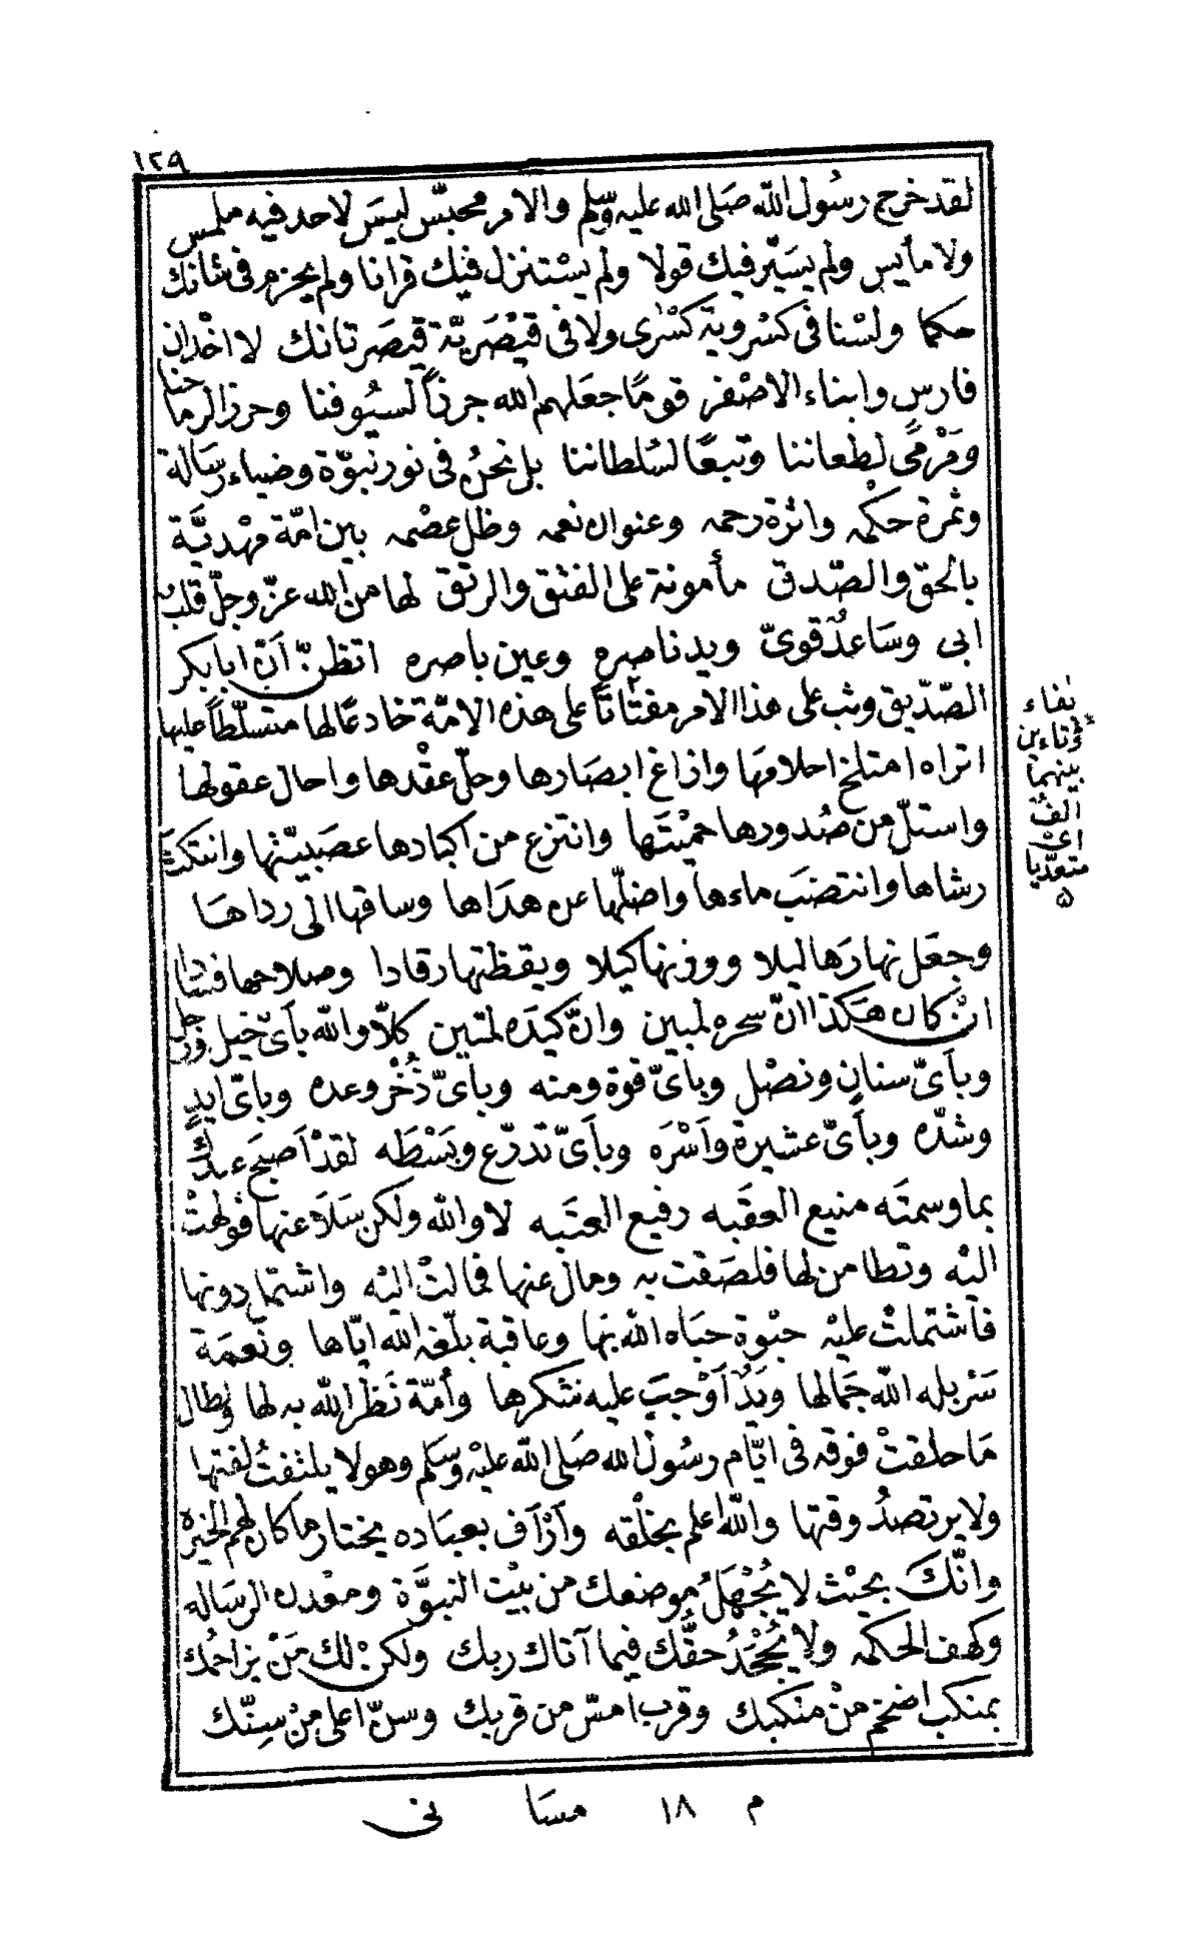 ١٢٩
لقد خرج رسول الله صلى الله عليه وسلم والامر محبّس ليس لاحد فيه ملمس
ولا مأيس ولم يسيّر فيك قولا ولم يستنزل فيك قرانا ولم يجزم فى شانك
حكما ولسنا فى كسروية كسرى ولا فى قيصريّة قيصر تانك لا اخدان
فارس وابناء الاصفر قوما جعلهم الله جرزاً لسيوفنا وحرزا لرماحنا
ومرمى لطعاننا وتبعًا لسلطاننا بل نحن فى نور نبوّة وضياء رسالة
وثمرة حكمه واثرة رحمه وعنوان نعمه وظل عصمه بين امّة مهديّة
بالحق والصّدق مأمونة على الفتق والرتق لها من الله عزّ وجلّ قلب
ابى وساعد قوىّ ويد ناصره وعين باصره اتظنّ أنّ ابا بكر
الصّديق وثب على هذا الامر مفتاتًا على هذه الامّة خادعًا لها متسلّطاً عليها
اتراه امتلخ احلامها وازاغ ابصارها وحلّ عقدها واحال عقولها
واستلّ من صدورها حميتها وانتزع من اكبادها عصبيّتها وانتكث
رشاها وانتضب ماءها واضلّها عن هداها وساقها الى رداها
وجعل نهارها ليلا ووزنها كيلا ويقظتها رقادا وصلاحها فسادا
ان كان هكذا انّ سحره لمبين وانّ كيده لمتين كلاّ والله بأىّ خيل ورجل
وبأىّ سنان ونصل وبأىّ قوة ومنه وبأىّ ذُخْر وعده وباىّ ايدٍ
وشدّه وبأىّ عشيرة واسره وبأىّ تدرّع وبسطه لقد اصبح عندك
بما وسمته منيع العقبه رفيع العتبه لا والله ولكن سلا عنها فولهت
اليه وتطامن لها فلصقت به ومال عنها فمالت اليه واشتمل دونها
فاشتملت عليه حبوة حباه الله بها وعاقبة بلّغه الله ايّاها ونعمة
سربله الله جمالها ويد اوجب عليه شكرها وأمّة نظر الله به لها ولطال
ما حلقت فوقه فى ايّام رسول الله صلى الله عليه وسلم وهو لا يلتفت لفتها
ولا يرتصد وقتها والله اعلم بخلقه وأرأف بعباده يختار ما كان لهم الخيرة
وانّك بحيث لا يُجهل موضعك من بيت النبوّة ومعدن الرساله
وكهف الحكمه ولا يُجحد حقّك فيما آتاك ربك ولكن لك مَنْ يزاحمك
بمنكب اضخم من منكبك وقرب امسّ من قربك وسنّ اعلى من سِنّك
بفاء
وتاءين
بينهما
الف
اى
متعدّيا
م ١٨ مسا نى